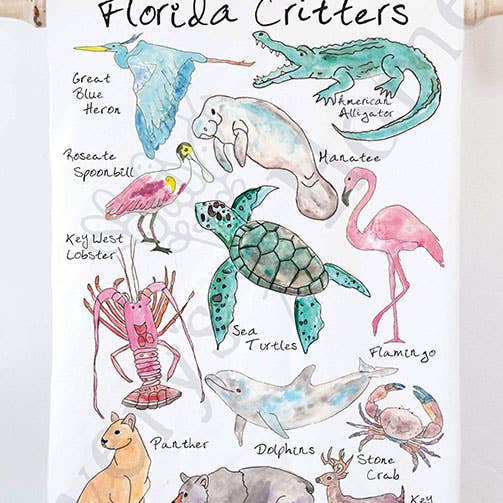 Florida Critters
Great
Blue
Heron
American
Alligator
Manatee
Roseate
Spoonbill
Key West
Lobster
Sea
Turtles
Flamingo
Panther
Dolphins
Stone
Crab
Key